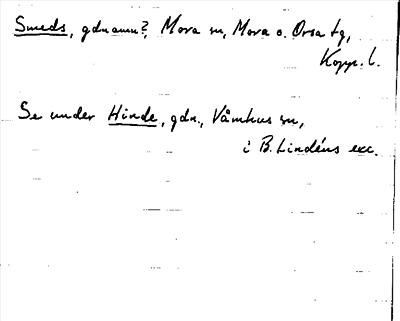 Smeds, gdnamn?, Mora sn, Mora o. Orsa tg,
Kopp. l.
Se under Hinde, gdn., Våmhus sn,
i B. Lindéns exc.